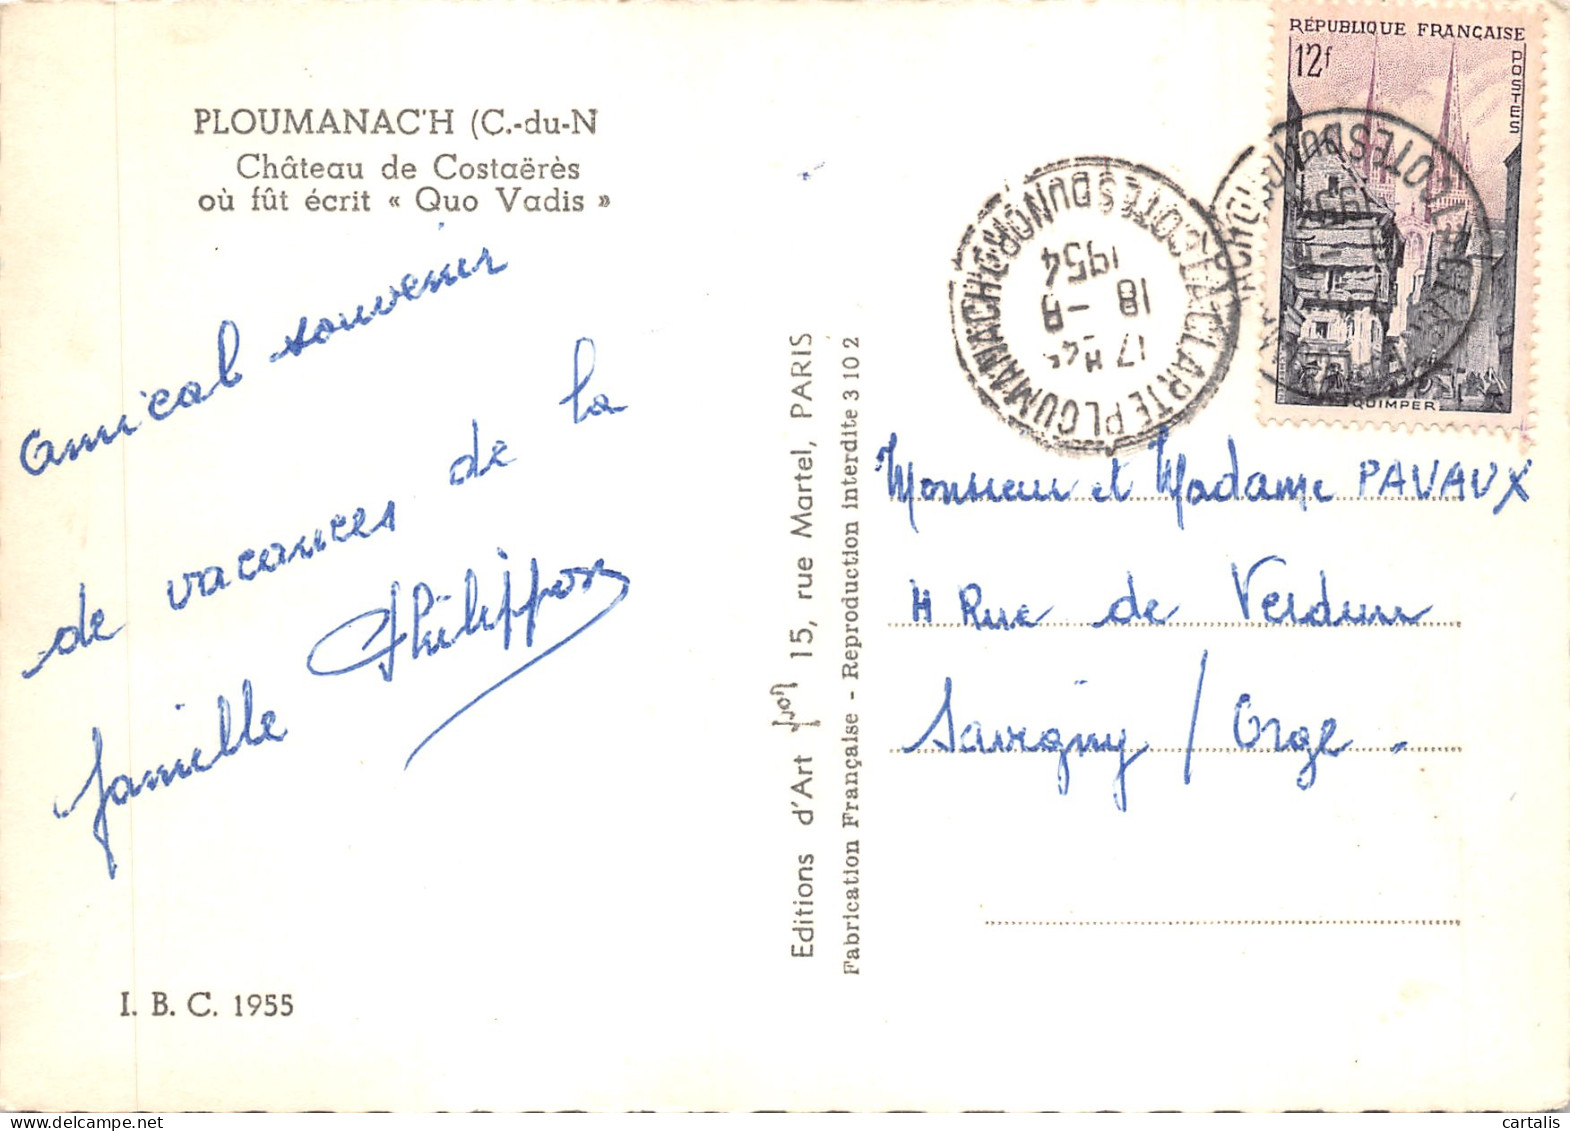 PLOUMANAC'H (C.-du-N
Château de Costaërès
où fût écrit « Quo Vadis »
amical souvenir
de vacances de la
famille Philippon
I. B. C. 1955
Editions d'Art 15, rue Martel, PARIS
Fabrication Française - Reproduction interdite 3102
RÉPUBLIQUE FRANÇAISE
12f
POSTES
QUIMPER
LA CLARTE PLOUMANACH
COTES DU NORD
17 H 45
18 - 8
1954
Monsieur et Madame PAVAUX
4 Rue de Verdun
Savigny / Orge
cartalis